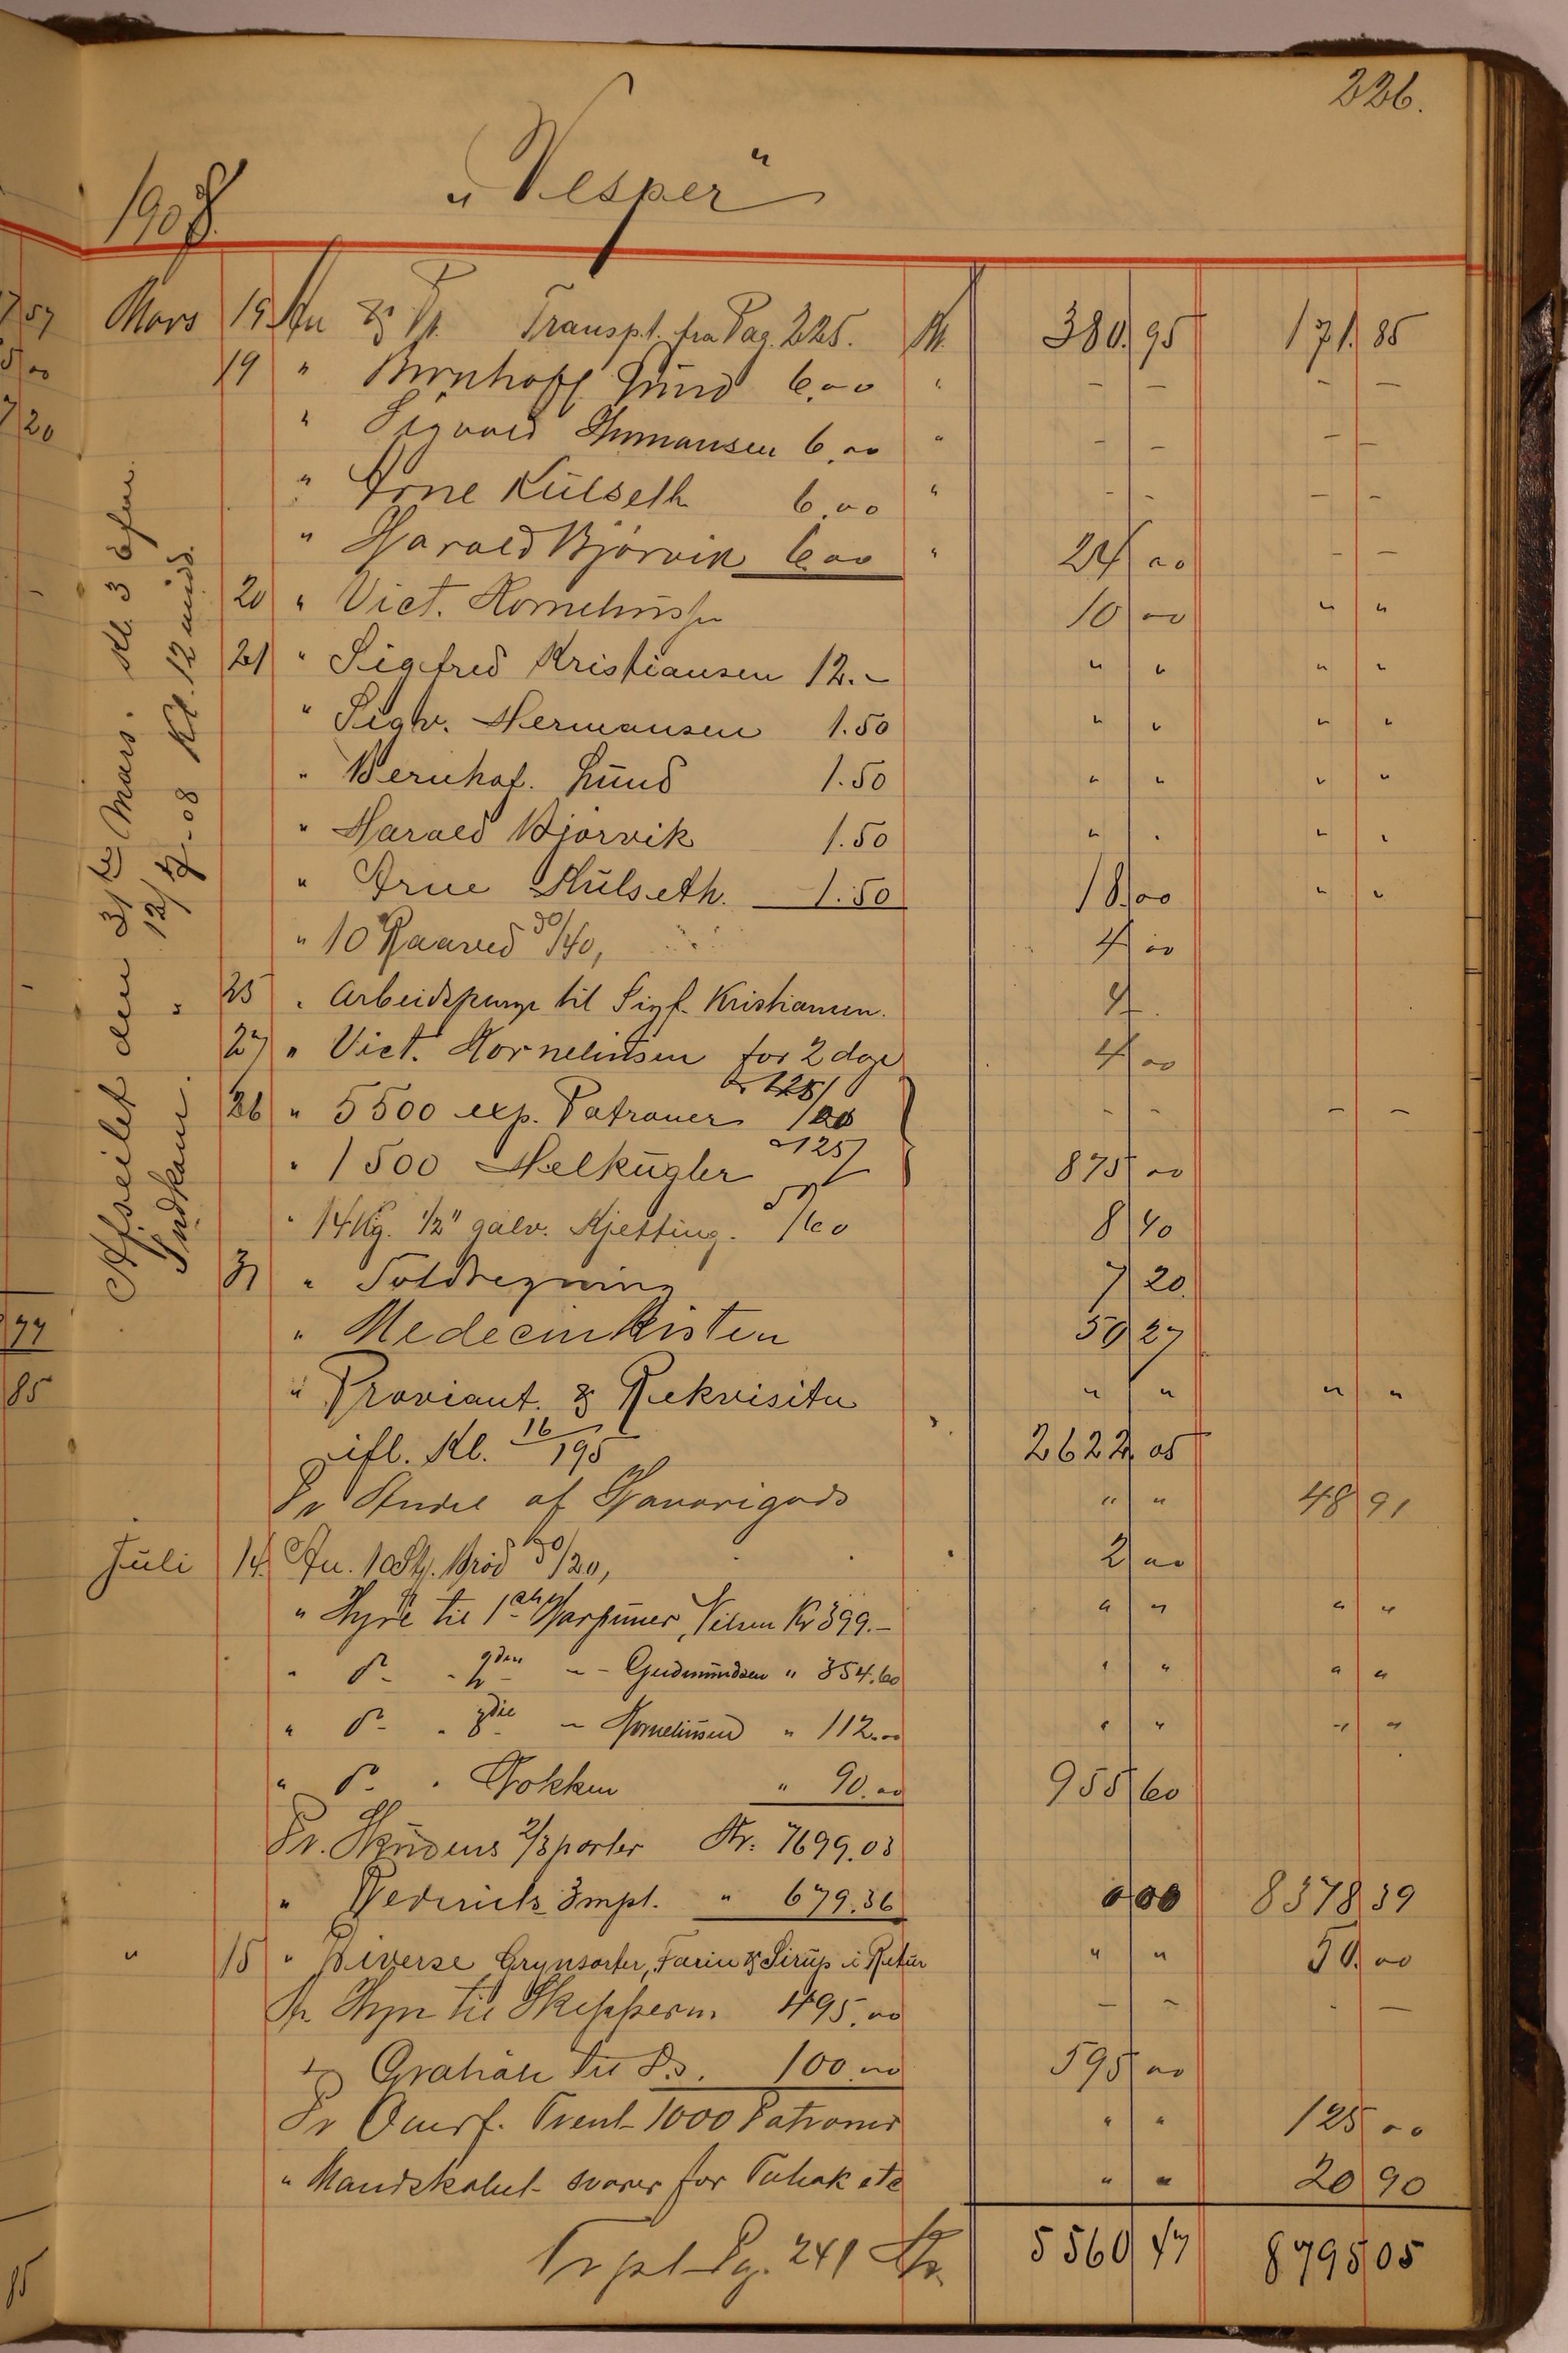 226.
1908.
„Vesper“
Mars 19 An & Pr. Transpt. fra Pag. 225. Kr. 380.95 171.85
19 " Bernhoff Lund 6.00 " – – – –
" Sigvald Hermansen 6.00 " – – – –
" Arne Külseth 6.00 " – – – –
" Harald Bjørvik 6.00 " 24 00 – –
20 " Vict. Korneliussen 10 00 " "
21 " Sigfred Kristiansen 12.– " " " "
" Sigv. Hermansen 1.50 " " " "
" Bernhof. Lund 1.50 " " " "
" Harald Bjørvik 1.50 " " " "
" Arne Külseth. 1.50 18.00 " "
" 10 Raaved /40, 4 00
25 " Arbeidspenge til Sigf. Kristiansen. 4
27 " Vict. Korneliusen for 2 dage 4 00
26 " 5500 exp. Patroner a 125/ – – – –
" 1500 Helkugler a 125/ 875 00
" 14 Kg. 1/2" galv. Kjetting. /60 8 40
31 " Toldregning 7 20
" Medecinkisten 59 27
" Proviant. & Rekvisita " " " "
ifl. Kl. 16/195 2622 05
Pr Andel af Havarigods " " 48 91
Juli 14. An. 10 Stk. Brød /20, 2 00
" Hyre til 1ste Harpuner, Nilsen Kr 399.– " " " "
" Do " 2den – – Gudmundsen " 354.60 " " " "
" Do " 3die – Korneliusen " 112.00 " " " "
" Do " Kokken " 90.00 955 60
Pr. Skudens 2/3 parter Kr. 7699.03
" Rederiets Impl. " 679.36 0 00 8378 39
" 15 " Diverse Grynsorter, Farin & Sirup i Retur " " 50.00
An Hyre til Skipperen 495.00 – – – –
" Gratiale til Do. 100.00 595 00
Pr Overf. 1000 Patroner " " 125 00
" Mandskabet svarer for Tobak etc " " 20 90
Trpt Pg. 241 Kr. 5560 47 8795 05
Afseilet den 31te Mars. Kl. 3 efter.
Indkom. " 12/7-08 Kl. 12 midd.
57
00
20
77
85